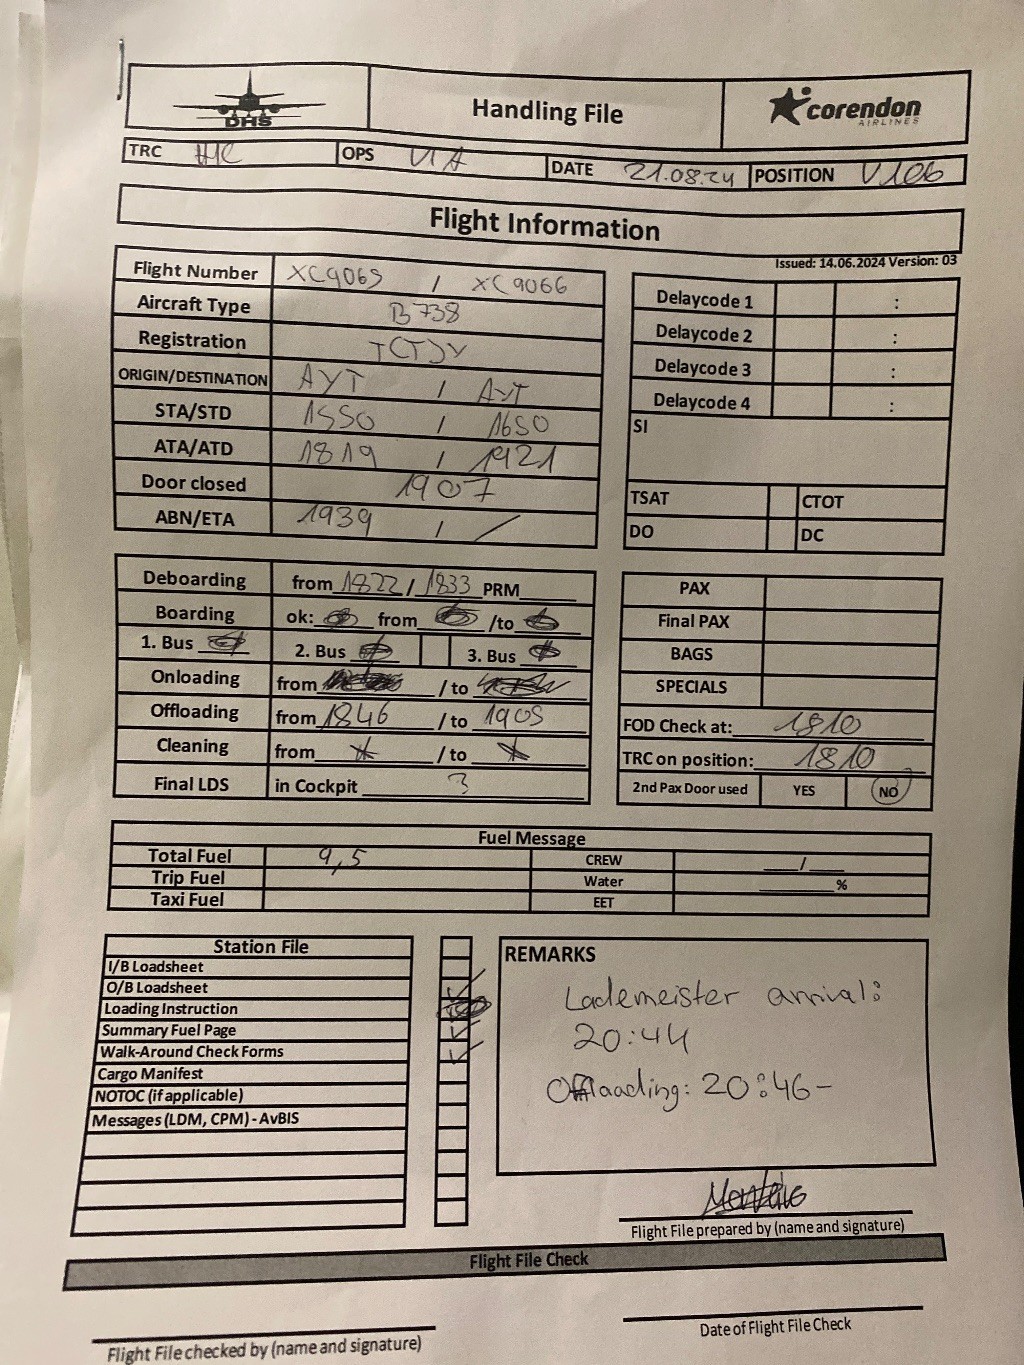 DHS
Handling File
corendon
AIRLINES
TRC
OPS VIA
DATE 21.08.24
POSITION V106
Flight Information
Issued: 14.06.2024 Version: 03
Flight Number XC9065 / XC9066
Aircraft Type B738
Registration TCTJY
ORIGIN/DESTINATION AYT / AYT
STA/STD 1550 / 1650
ATA/ATD 1819 / 1921
Door closed 1907
ABN/ETA 1939 /
Delaycode 1 :
Delaycode 2 :
Delaycode 3 :
Delaycode 4 :
SI
TSAT CTOT
DO DC
Deboarding from 1822 / 1833 PRM
Boarding ok: from /to
1. Bus 2. Bus 3. Bus
Onloading from / to
Offloading from 1846 / to 1905
Cleaning from / to
Final LDS in Cockpit 3
PAX
Final PAX
BAGS
SPECIALS
FOD Check at: 1810
TRC on position: 1810
2nd Pax Door used YES NO
Fuel Message
Total Fuel 9,5 CREW /
Trip Fuel Water %
Taxi Fuel EET
Station File
I/B Loadsheet
O/B Loadsheet
Loading Instruction
Summary Fuel Page
Walk-Around Check Forms
Cargo Manifest
NOTOC (if applicable)
Messages (LDM, CPM) - AvBIS
REMARKS
Lademeister arrival:
20:44
Offloading: 20:46-
Flight File prepared by (name and signature)
Flight File Check
Flight File checked by (name and signature)
Date of Flight File Check